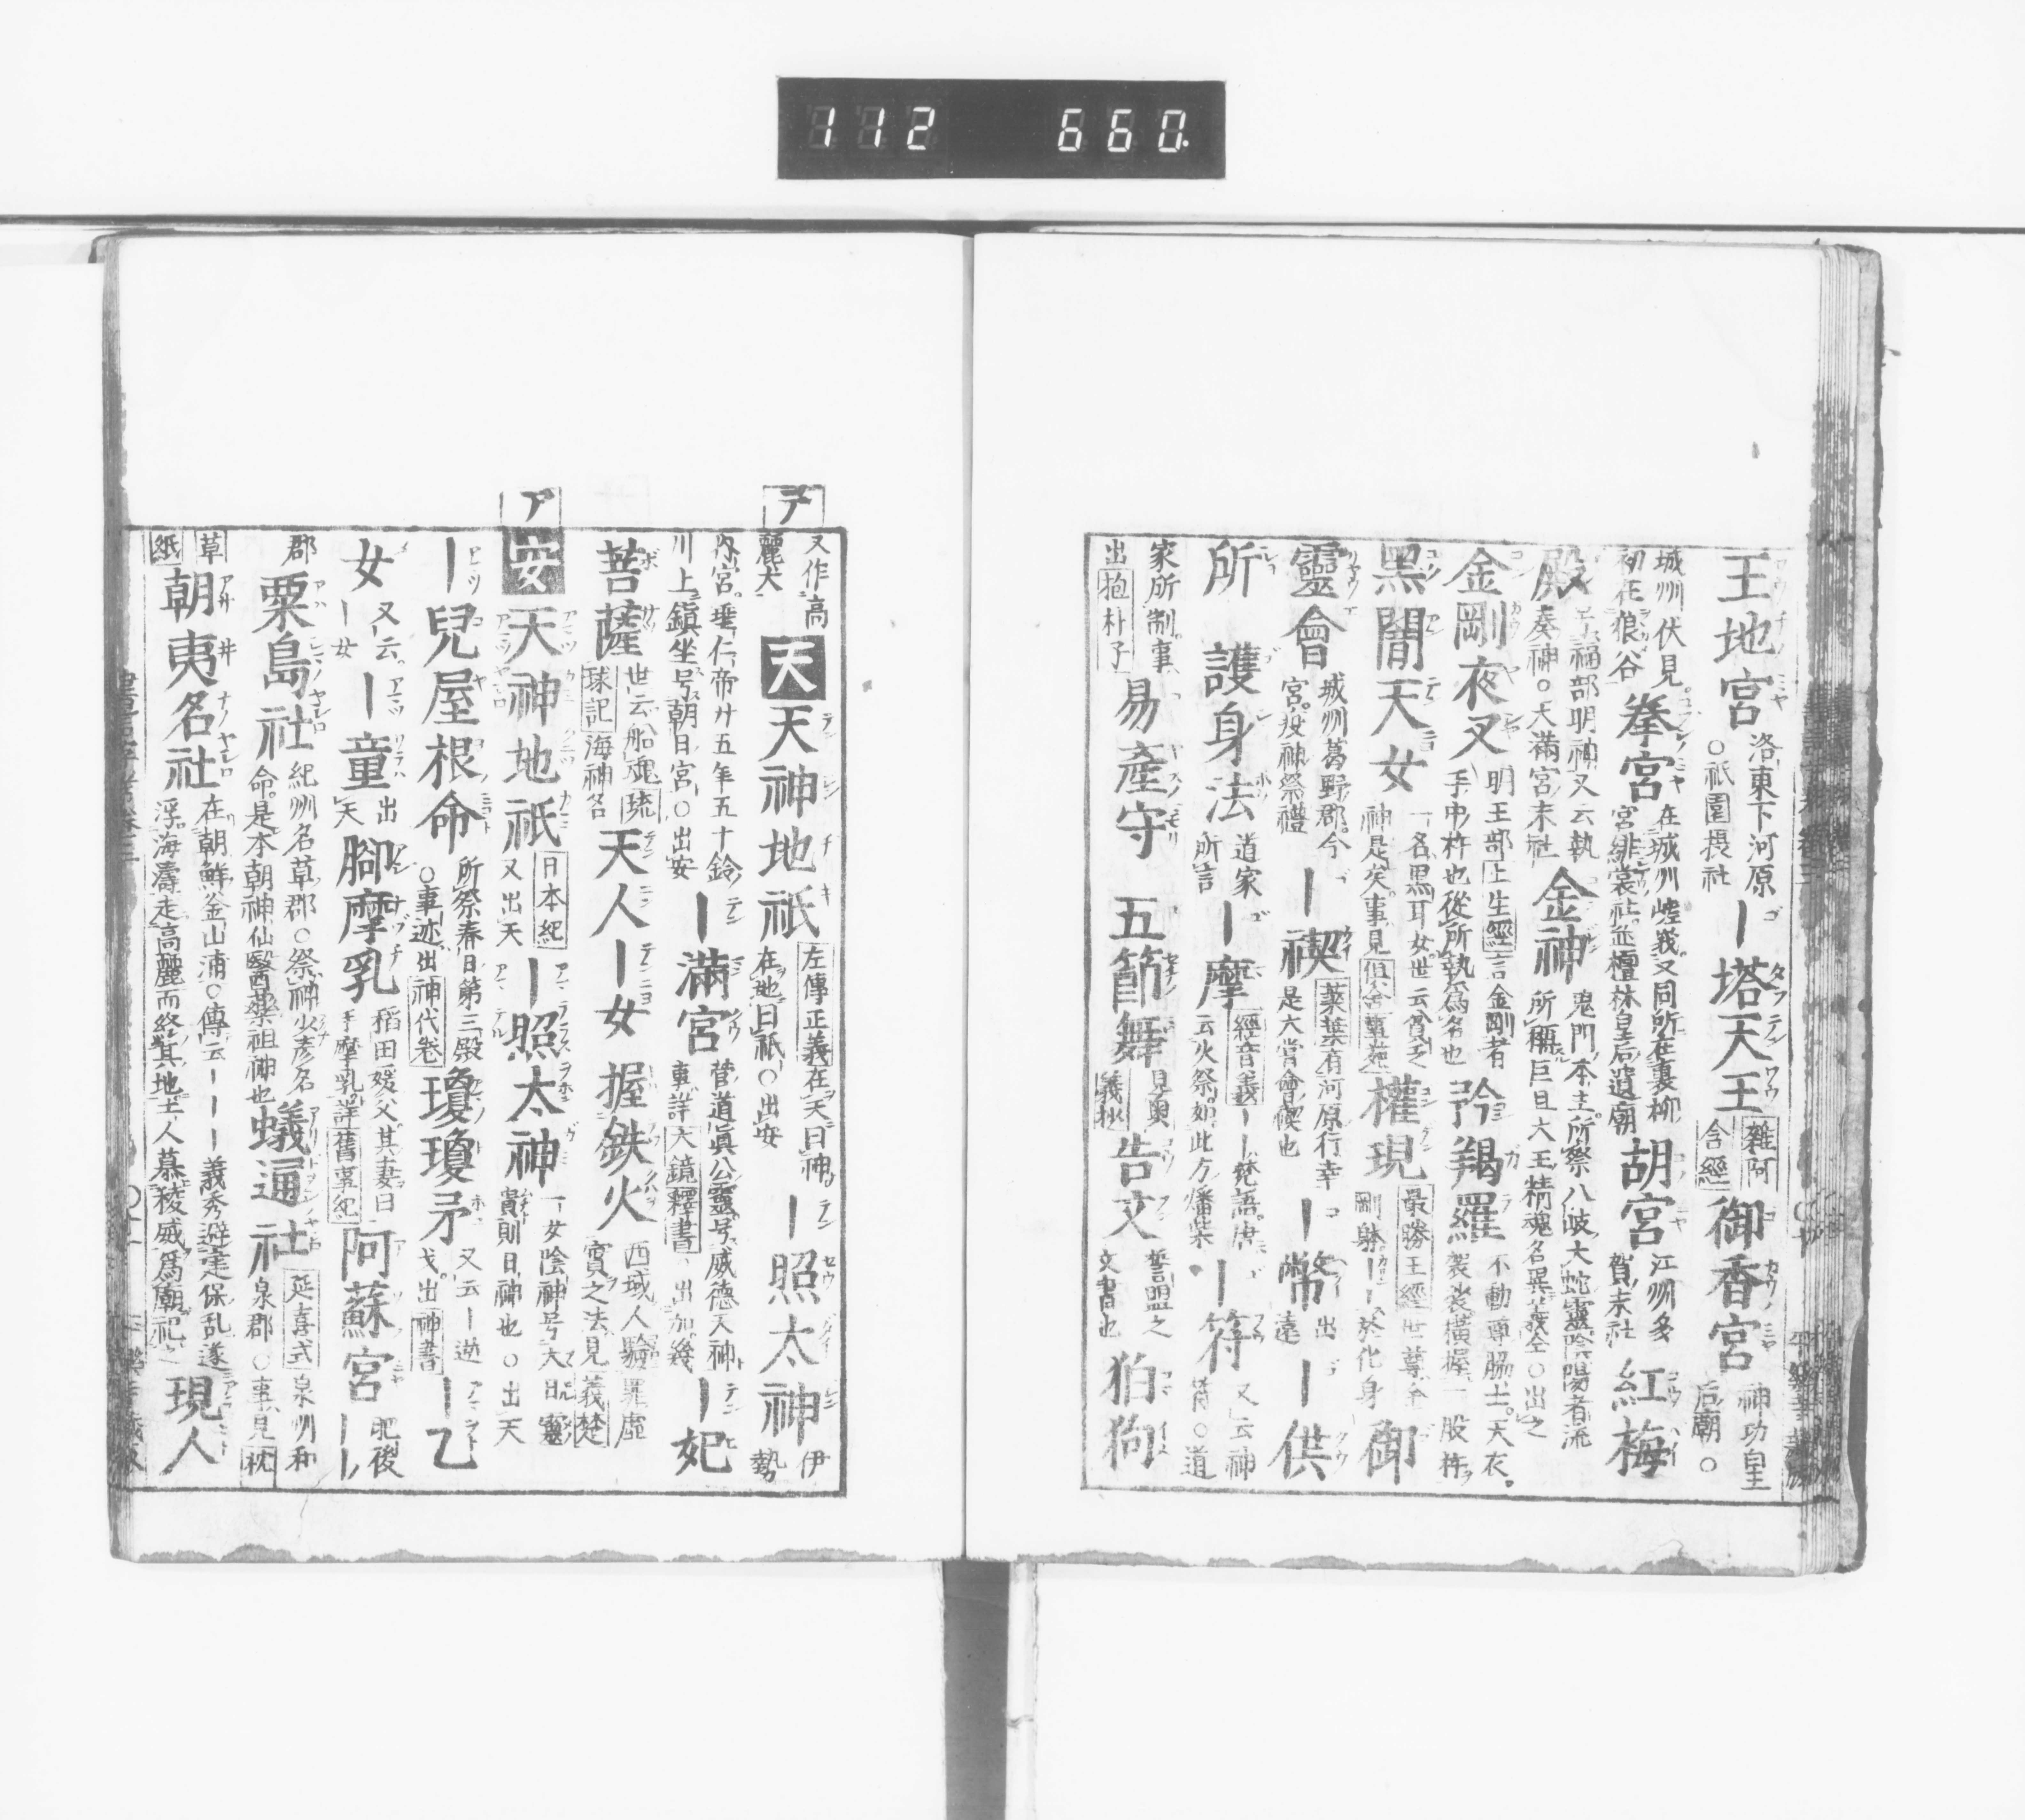 112 660
王地宮 洛東下河原○祇園摂社 ー塔天王 雜阿含經 御香宮 神功皇后廟○
城州伏見初在狼谷 拳宮 在城州嵯峨又同所在裏柳宮緋裳社並檀林皇后遺廟 胡宮 江州多賀末社 紅梅
殿 福部明神又云執奏神○天滿宮末社 金神 鬼門本主所祭八岐大蛇靈陰陽者流所稱巨旦大王精魂名異義全○出之
金剛夜叉 明王部上生經言金剛者手中杵也從所執爲名也 矜羯羅 不動尊脇士天衣袈裟橫握一股杵
黑闇天女 一名黑耳女世云貧乏神是矣事見俱舍 權現 最勝王經世尊金剛躰ーー於化身 御
靈會 城州葛野郡今宮疫神祭禮 ー禊 藥葉有河原行幸是大嘗會禊也 ー幣 出遠 ー供
所 護身法 道家所言 ー摩 經音義ーー梵語唐云火祭如此方燔柴 ー符 又云神符○道
家所制事出抱朴子 易產守 五節舞 告文 誓盟之文書也 狛狗
テ
又作高麗犬 天 天神地祇 左傳正義在天曰神在地曰祇○出安 ー照太神 伊勢
內宮垂仁帝廿五年五十鈴川上鎭坐号朝日宮○出安 ー滿宮 菅道眞公靈号威德天神事詳大鏡釋書 出加幾 ー妃
菩薩 世云船魂琉球記海神名 天人 ー女 握鉄火 西域人驗罪虛實之法見義楚
ア
安 天神地祇 日本紀又出天 ー照太神 一女陰神号大日靈貴則日神也○出天
ー兒屋根命 所祭春日第三殿○事迹出神代卷 瓊瓊矛 又云ー逆戈出神書 ー乙
女 又云ー女 ー童 出天 脚摩乳 稻田媛父其妻曰手摩乳詳舊事紀 阿蘇宮 肥後ーー
郡 粟島社 紀州名草郡○祭神少彥名命是本朝神仙醫藥祖神也 蟻通社 延喜式泉州和泉郡○事見枕
草紙 朝夷名社 在朝鮮釜山浦○傳云ーーー義秀避建保乱遂浮海濤走高麗而終其地土人慕稜威爲廟祀 現人